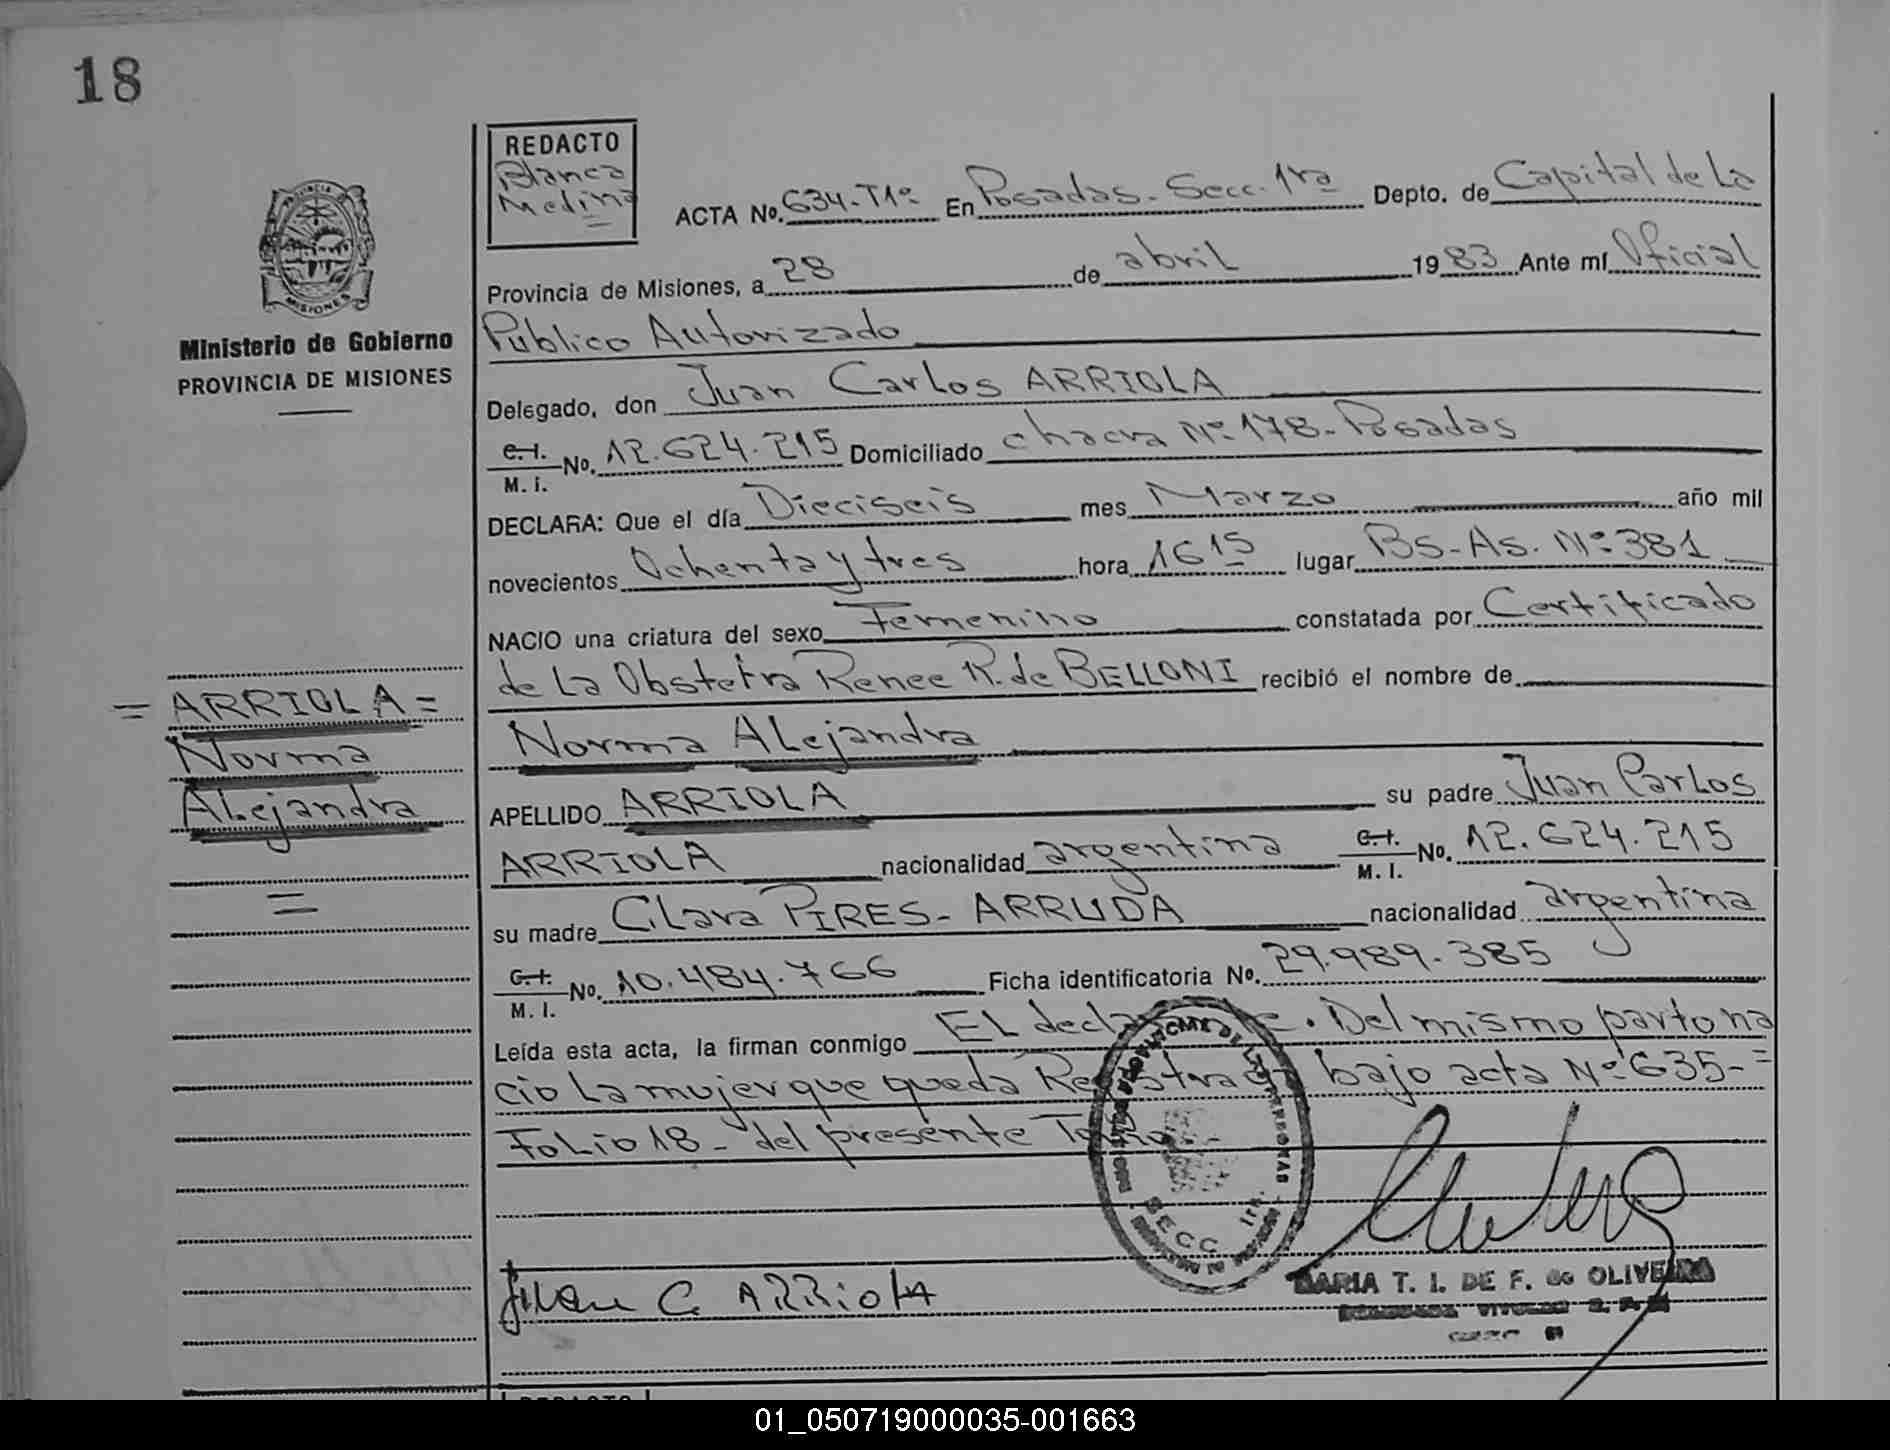 18
REDACTO
Blanca
Medina
ACTA No. 634-T1º En Posadas-Secc. 1ra Depto. de Capital de La
Provincia de Misiones, a 28 de abril 1983 Ante mí Oficial
Publico Autorizado
Delegado, don Juan Carlos ARRIOLA
C.I. M. I. No. 12.624.215 Domiciliado chacra Nº 178-Posadas
DECLARA: Que el día Dieciseis mes Marzo año mil
novecientos Ochenta y tres hora 16 15 lugar Bs-As. Nº 381
NACIO una criatura del sexo Femenino constatada por Certificado
de La Obstetra Renee R. de BELLONI recibió el nombre de
Norma Alejandra
APELLIDO ARRIOLA su padre Juan Carlos
ARRIOLA nacionalidad argentina C.I. M. I. No. 12.624.215
su madre Clara PIRES-ARRUDA nacionalidad argentina
C.I. M. I. No. 10.484.766 Ficha identificatoria No. 29.989.385
Leída esta acta, la firman conmigo EL declarante. Del mismo parto na
cio La mujer que queda Registrada bajo acta Nº 635-=
Folio 18- del presente Tomo
Juan C. ARRiolA
MARIA T. I. DE F. de OLIVEIRA
SECC 1ra.
MISIONES
Ministerio de Gobierno
PROVINCIA DE MISIONES
= ARRIOLA =
Norma
Alejandra
=
REDACTO
01_050719000035-001663